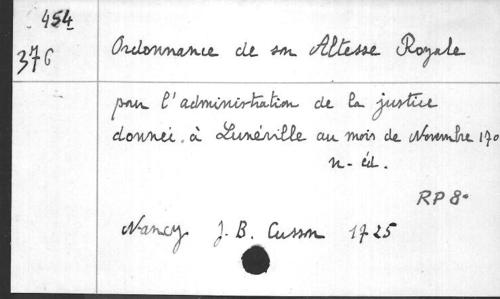 454
376
Ordonnance de son Altesse Royale
pour l'administration de la justice
donnée à Lunéville au mois de Novembre 170
n. éd.
RP 8º
Nancy J. B. Cusson 1725